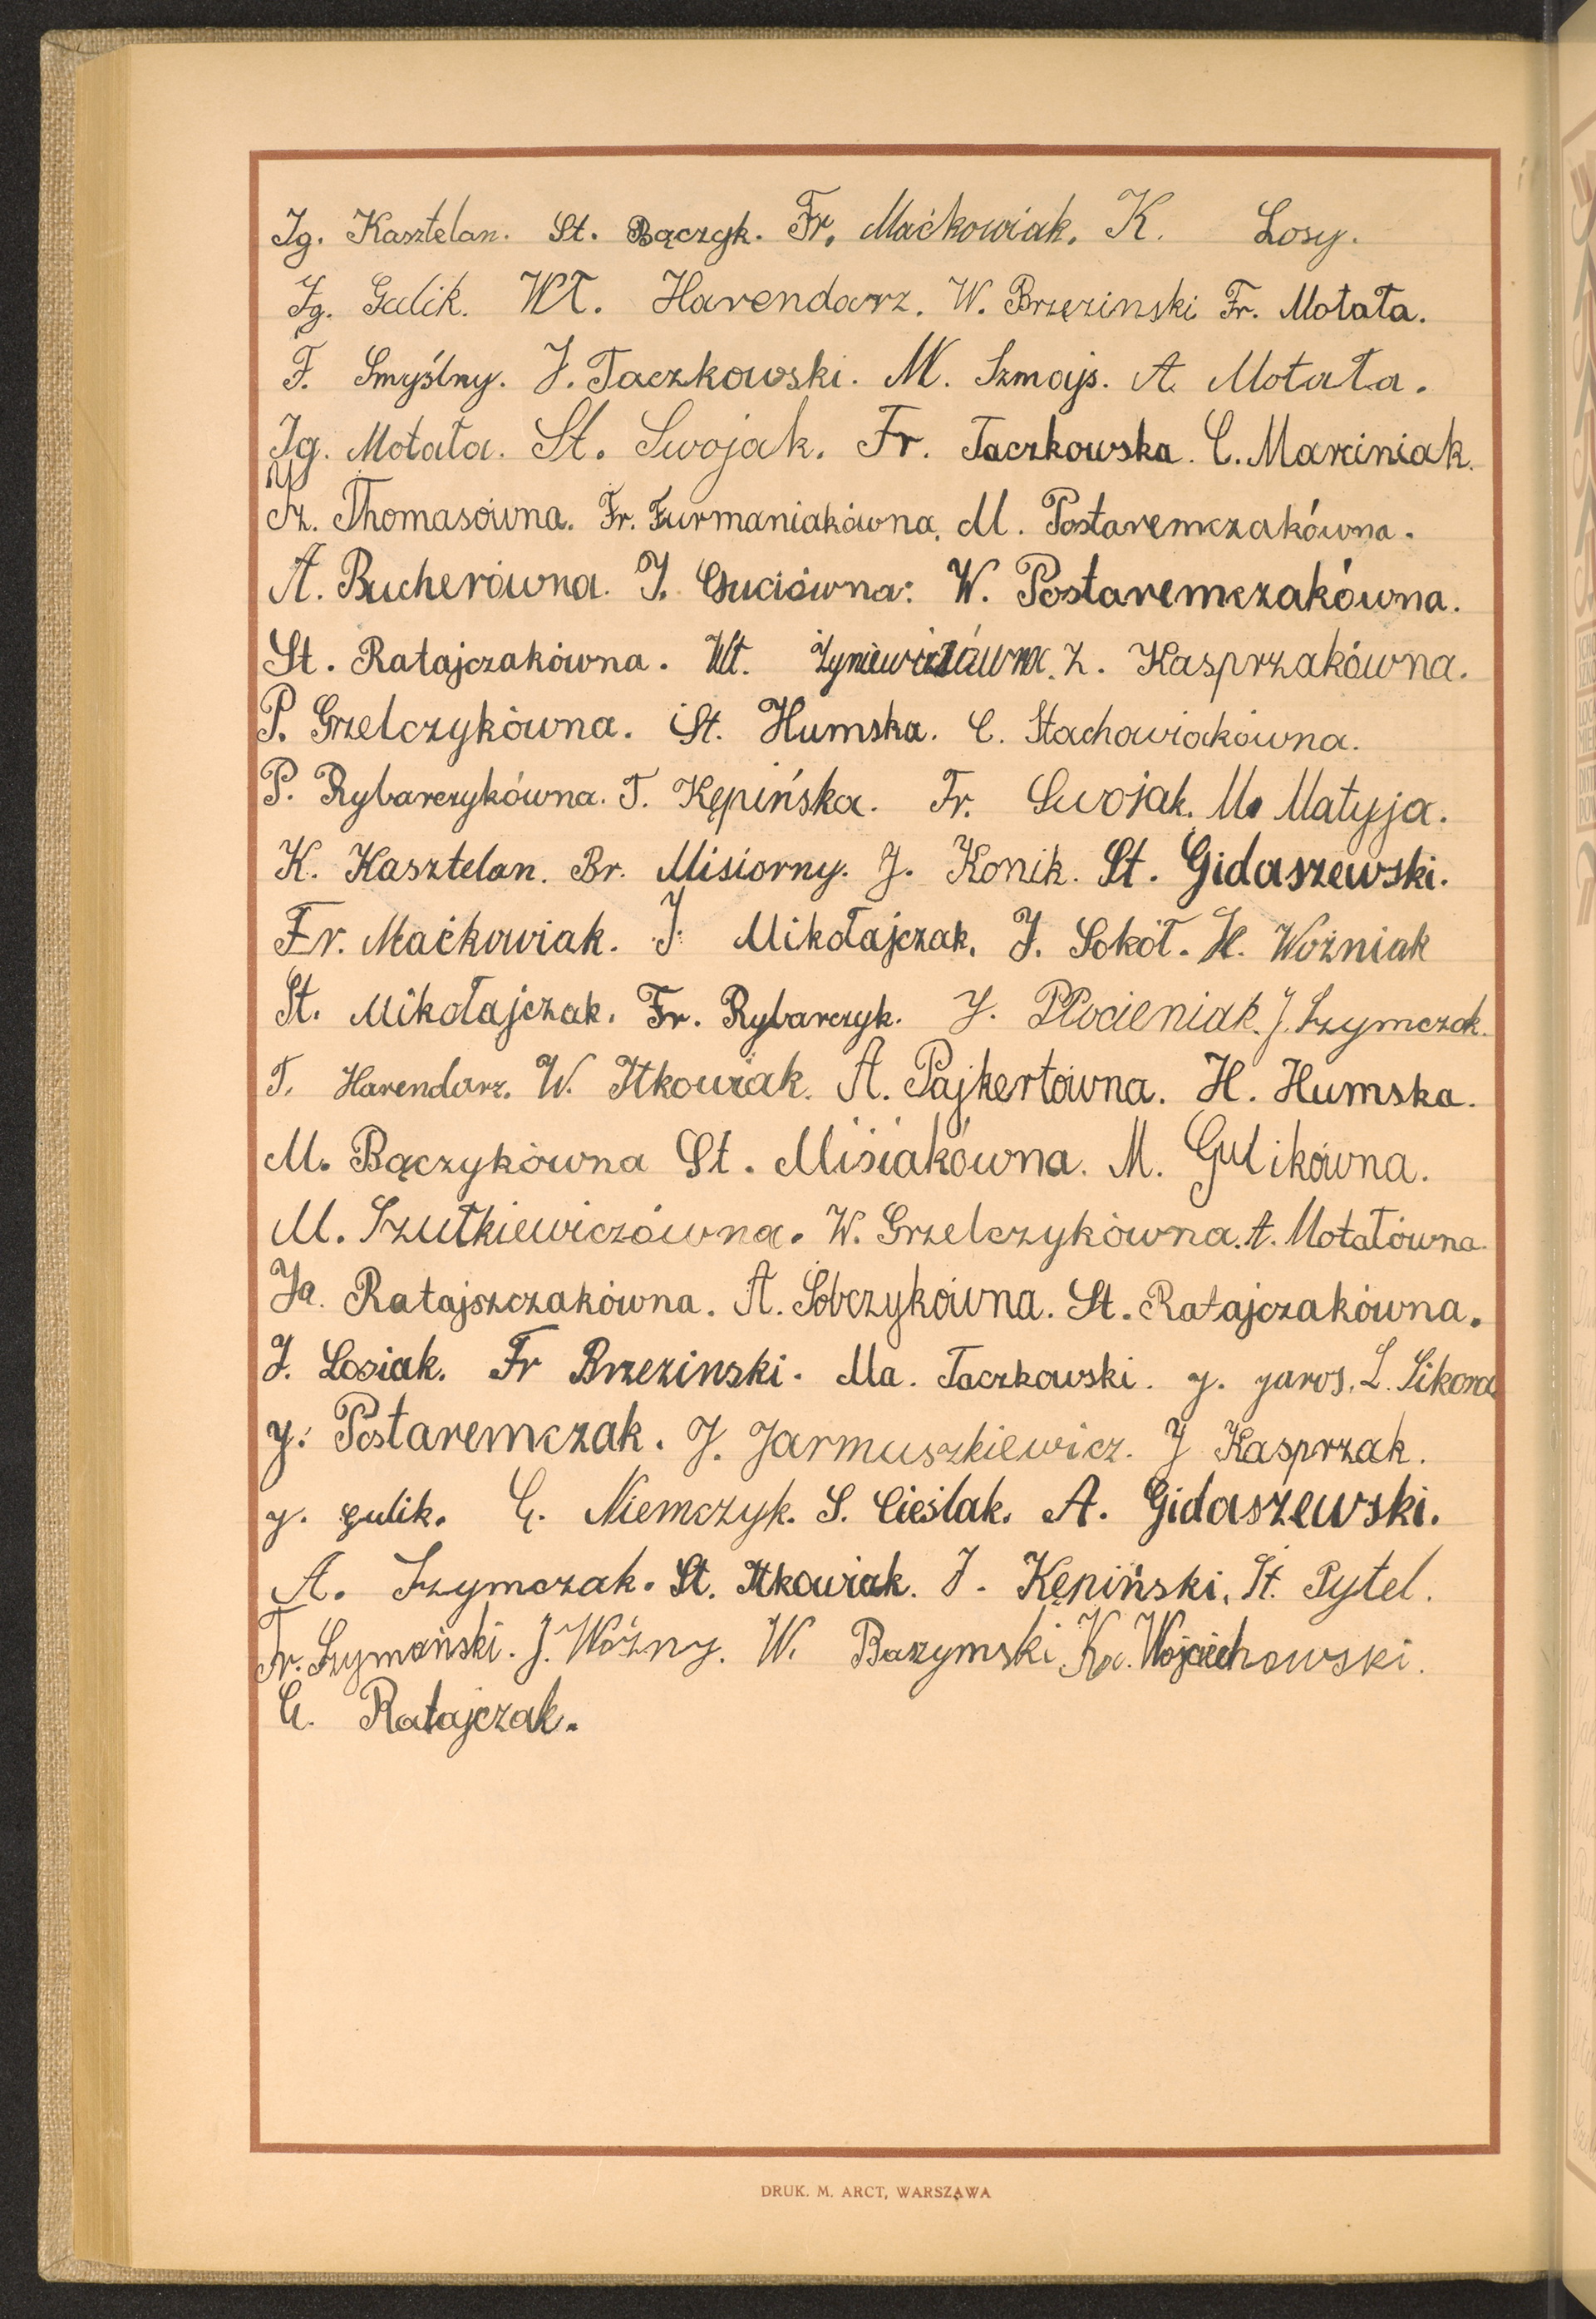 Ig. Kasztelan. St. Bączyk. Fr. Maćkowiak. K. Losy.
Ig. Gulik. Wł. Harendarz. W. Brzezinski Fr. Motała.
F. Smyślny. J. Taczkowski. M. Szmajs. A. Motała.
Ig. Motała. St. Swojak. Fr. Taczkowska. C. Marciniak.
Cz. Thomasówna. Fr. Furmaniakówna. M. Postaremczakówna.
A. Bucherówna. J. Guciówna. W. Postaremczakówna.
St. Ratajczakówna. Wł. Żyniewiczówna. Z. Kasprzakówna.
P. Grzelczykówna. St. Humska. C. Stachowiakówna.
P. Rybarczykówna. T. Kępińska. Fr. Swojak. M. Matyja.
K. Kasztelan. Br. Misiorny. J. Konik. St. Gidaszewski.
Fr. Maćkowiak. J. Mikołajczak. J. Sokół. H. Woźniak
St. Mikołajczak. Fr. Rybarczyk. J. Płocieniak. J. Szymczak.
T. Harendarz. W. Itkowiak. A. Pajkertówna. H. Humska.
M. Bączykówna St. Misiakówna. M. Gulikówna.
M. Szutkiewiczówna. W. Grzelczykówna. A. Motałówna.
Ja. Ratajszczakówna. A. Sobczykówna. St. Ratajczakówna.
J. Losiak. Fr Brzezinski. Ma. Taczkowski. J. Jaros. L. Sikora
J. Postaremczak. J. Jarmuszkiewicz. J Kasprzak.
J. Gulik. C. Niemczyk. S. Cieślak. A. Gidaszewski.
A. Szymczak. St. Itkowiak. J. Kępiński. St. Pytel.
Fr. Szymański. J. Woźny. W. Baszymski. Ka. Wojciechowski.
C. Ratajczak.
DRUK. M. ARCT, WARSZAWA